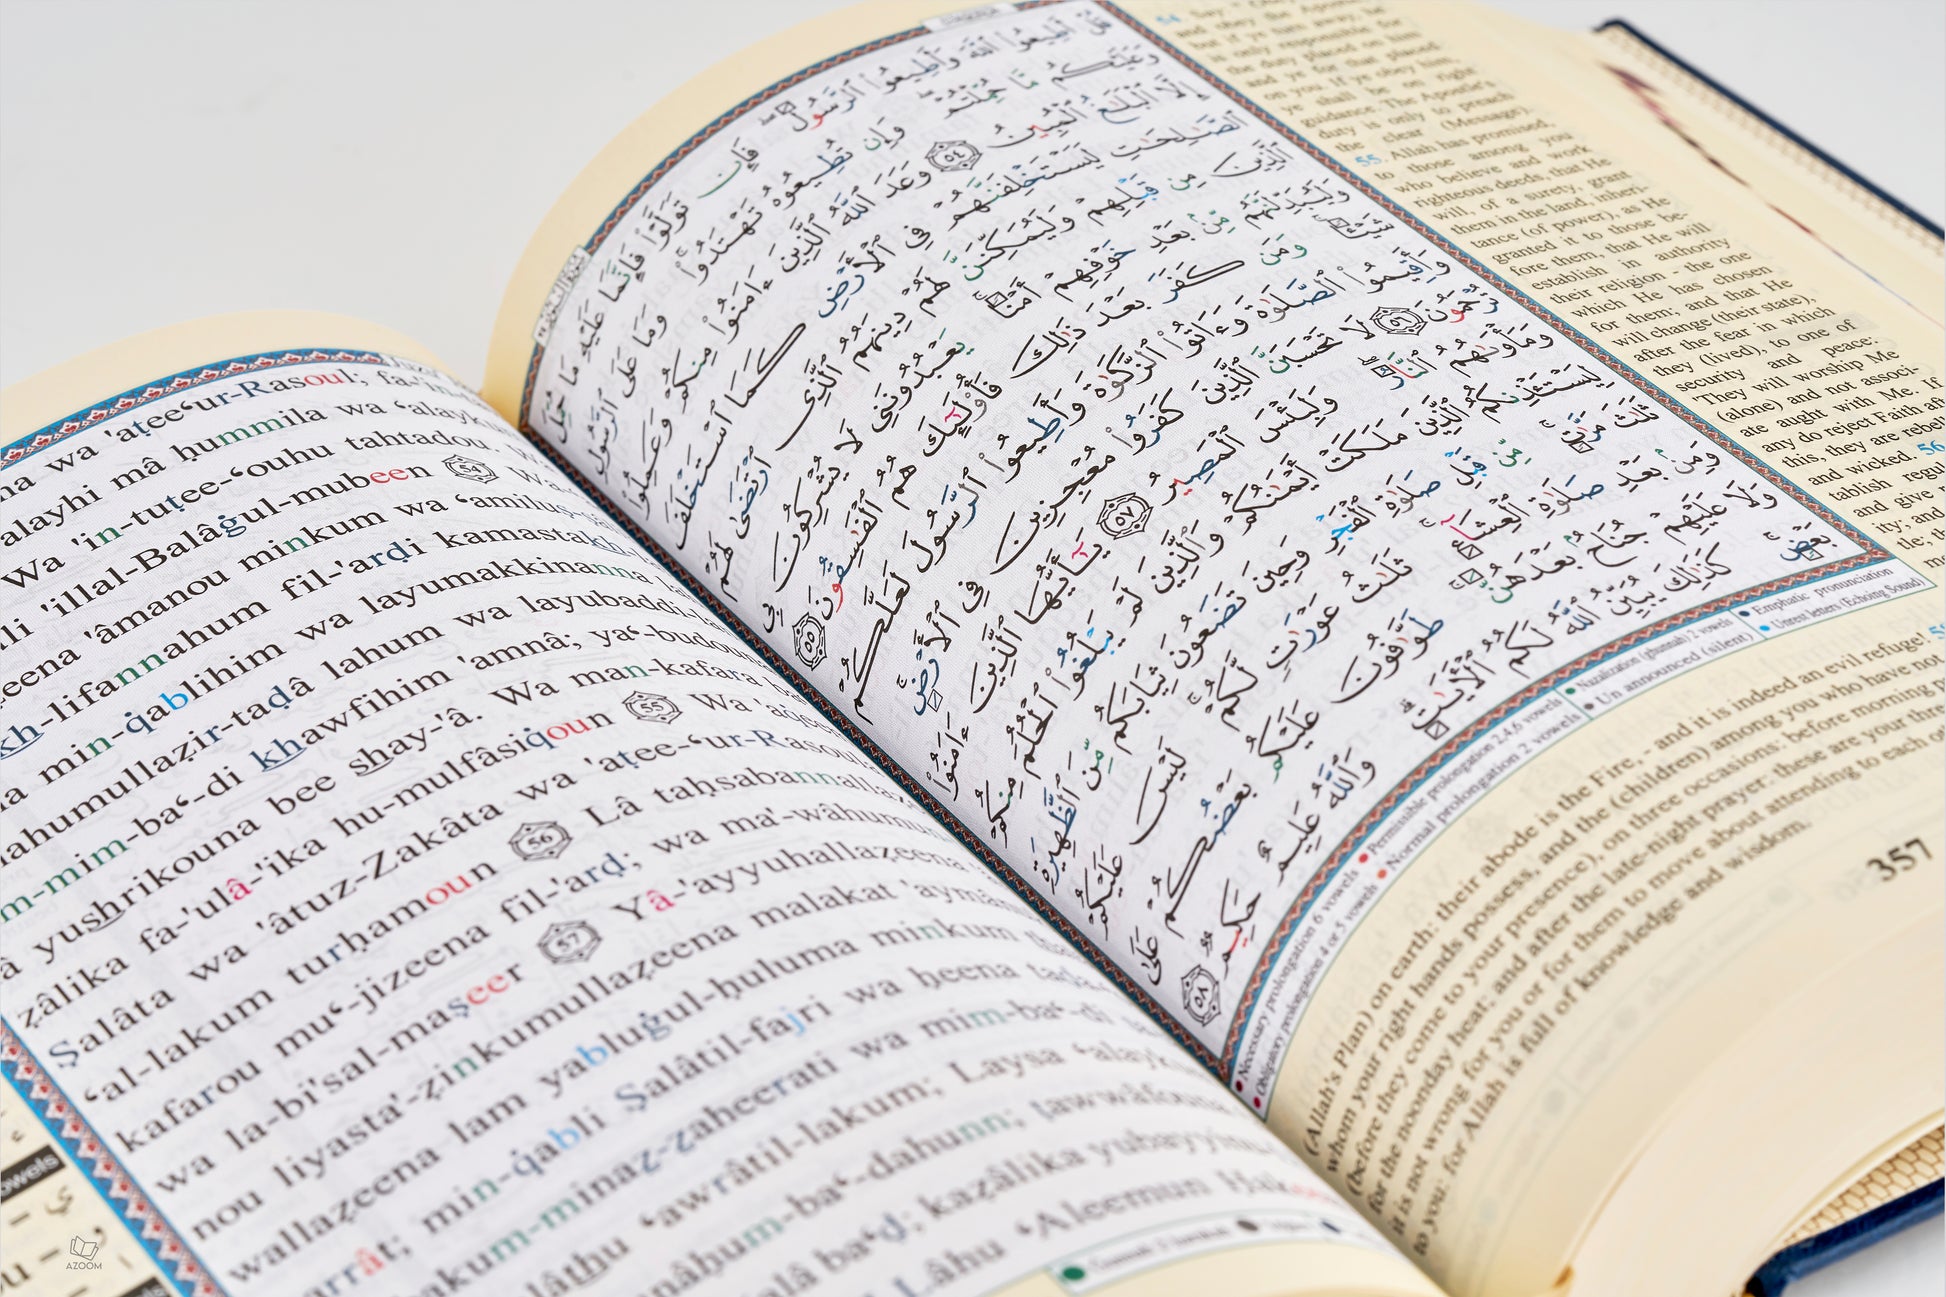 na wa 'aṭee‘ur-Rasoul; fa-'in-
alayhi mâ ḥummila wa ‘alayku
Wa 'in-tuṭee-‘ouhu tahtadou.
'illal-Balâġul-mubeen 54 Wa-
eena 'âmanou minkum wa ‘amiluṣ-ṣâ
kh-lifannahum fil-'arḍi kamastakh-l
a min-qablihim wa layumakkinanna la
ahumullaẓir-taḍâ lahum wa layubaddi-l
m-mim-ba‘-di khawfihim 'amnâ; ya‘-budou
â yushrikouna bee shay-'â. Wa man-kafara ba
ẓâlika fa-'ulâ-'ika hu-mulfâsiqoun 55 Wa 'aqee
Ṣalâta wa 'âtuz-Zakâta wa 'aṭee-‘ur-Rasoul
‘al-lakum turḥamoun 56 Lâ taḥsabannallaẓ
kafarou mu‘-jizeena fil-'arḍ; wa ma'-wâhumun
wa la-bi'sal-maṣeer 57 Yâ-'ayyuhallaẓeena
nou liyasta'-ẓinkumullaẓeena malakat 'aymân
wallaẓeena lam yabluġul-ḥuluma minkum tha
arrât; min-qabli Ṣalâtil-fajri wa ḥeena taḍa-
akum-minaẓ-ẓaheerati wa mim-ba‘-di
lâthu ‘awrâtil-lakum; Laysa ‘alayk
nâḥum-ba‘-dahunn; ṭawwâfouna
alâ ba‘ḍ; kaẓâlika yubayyinu
Lâhu ‘Aleemun Ḥak
AZOOM
قُلْ أَطِيعُوا۟ ٱللَّهَ وَأَطِيعُوا۟ ٱلرَّسُولَ ۖ فَإِن تَوَلَّوْا۟ فَإِنَّمَا عَلَيْهِ مَا حُمِّلَ
وَعَلَيْكُم مَّا حُمِّلْتُمْ ۖ وَإِن تُطِيعُوهُ تَهْتَدُوا۟ ۚ وَمَا عَلَى ٱلرَّسُولِ
إِلَّا ٱلْبَلَـٰغُ ٱلْمُبِينُ ٥٤ وَعَدَ ٱللَّهُ ٱلَّذِينَ ءَامَنُوا۟ مِنكُمْ وَعَمِلُوا۟
ٱلصَّـٰلِحَـٰتِ لَيَسْتَخْلِفَنَّهُمْ فِى ٱلْأَرْضِ كَمَا ٱسْتَخْلَفَ
ٱلَّذِينَ مِن قَبْلِهِمْ وَلَيُمَكِّنَنَّ لَهُمْ دِينَهُمُ ٱلَّذِى ٱرْتَضَىٰ لَهُمْ
وَلَيُبَدِّلَنَّهُم مِّنۢ بَعْدِ خَوْفِهِمْ أَمْنًا ۚ يَعْبُدُونَنِى لَا يُشْرِكُونَ بِى
شَيْـًٔا ۚ وَمَن كَفَرَ بَعْدَ ذَٰلِكَ فَأُو۟لَـٰٓئِكَ هُمُ ٱلْفَـٰسِقُونَ ٥٥
وَأَقِيمُوا۟ ٱلصَّلَوٰةَ وَءَاتُوا۟ ٱلزَّكَوٰةَ وَأَطِيعُوا۟ ٱلرَّسُولَ لَعَلَّكُمْ
تُرْحَمُونَ ٥٦ لَا تَحْسَبَنَّ ٱلَّذِينَ كَفَرُوا۟ مُعْجِزِينَ فِى ٱلْأَرْضِ ۚ
وَمَأْوَىٰهُمُ ٱلنَّارُ ۖ وَلَبِئْسَ ٱلْمَصِيرُ ٥٧ يَـٰٓأَيُّهَا ٱلَّذِينَ ءَامَنُوا۟
لِيَسْتَـْٔذِنكُمُ ٱلَّذِينَ مَلَكَتْ أَيْمَـٰنُكُمْ وَٱلَّذِينَ لَمْ يَبْلُغُوا۟ ٱلْحُلُمَ مِنكُمْ
ثَلَـٰثَ مَرَّٰتٍ ۚ مِّن قَبْلِ صَلَوٰةِ ٱلْفَجْرِ وَحِينَ تَضَعُونَ ثِيَابَكُم مِّنَ ٱلظَّهِيرَةِ
وَمِنۢ بَعْدِ صَلَوٰةِ ٱلْعِشَآءِ ۚ ثَلَـٰثُ عَوْرَٰتٍ لَّكُمْ ۚ لَيْسَ عَلَيْكُمْ
وَلَا عَلَيْهِمْ جُنَاحٌۢ بَعْدَهُنَّ ۚ طَوَّٰفُونَ عَلَيْكُم بَعْضُكُمْ عَلَىٰ
بَعْضٍ ۚ كَذَٰلِكَ يُبَيِّنُ ٱللَّهُ لَكُمُ ٱلْـَٔايَـٰتِ ۗ وَٱللَّهُ عَلِيمٌ حَكِيمٌ ٥٨
Necessary prolongation 6 vowels Permissible prolongation 2,4,6 vowels
Obligatory prolongation 4 or 5 vowels Normal prolongation 2 vowels
Nazalization (ghunnah) 2 vowels Emphatic pronunciation
Un announced (silent) Unrest letters (Echoing Sound)
54. Say:
and obey the Apostle
but if ye turn away, he
is only responsible for
the duty placed on him
and ye for that placed
on you. If ye obey him,
ye shall be on right
guidance. The Apostle's
duty is only to preach
the clear (Message).
55. Allah has promised,
to those among you
who believe and work
righteous deeds, that He
will, of a surety, grant
them in the land, inheri-
tance (of power), as He
granted it to those be-
fore them; that He will
establish in authority
their religion - the one
which He has chosen
for them; and that He
will change (their state),
after the fear in which
they (lived), to one of
security and peace:
'They will worship Me
(alone) and not associ-
ate aught with Me.' If
any do reject Faith after
this, they are rebel
and wicked. 56
tablish regul
and give
ity; and
tle; t
(Allah's Plan) on earth: their abode is the Fire,- and it is indeed an evil refuge! 58
whom your right hands possess, and the (children) among you who have not
(before they come to your presence), on three occasions: before morning p
for the noonday heat; and after the late-night prayer: these are your thre
it is not wrong for you or for them to move about attending to each oth
to you: for Allah is full of knowledge and wisdom.
357